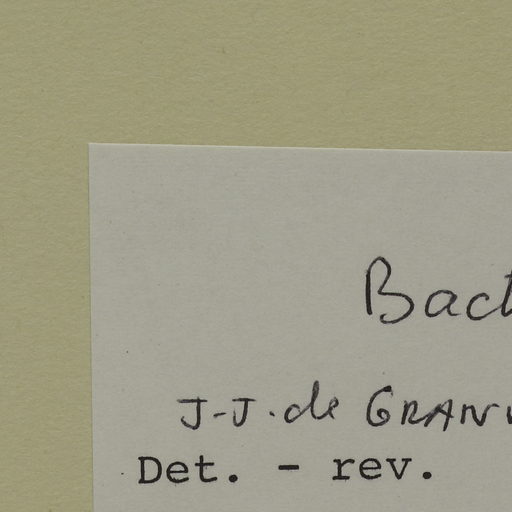 Bact
J-J. de GRANV
Det. - rev.